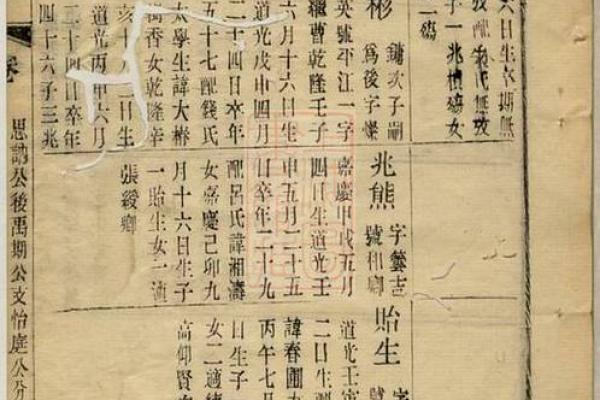 六日生卒期無
攷配朱氏無攷
子一兆楨殤女
一殤
彬
鏞次子嗣
爲後字燦
英號平江一字
繼曹乾隆壬子
六月十六日生
道光戊申四月
二十四日卒年
五十七配錢氏
太學生諱大椿
樹香女乾隆辛
亥十月二日生
道光丙申六月
二十四日卒年
四十六子三兆
兆熊
字夢吉
號和卿
嘉慶甲戌五月
四日生道光壬
申五月二十五
日卒年二十九
配呂氏諱湘濤
女嘉慶己卯九
月十六日生子
一貽生女一適
張緩卿
貽生
字
號
道光壬寅
二日生
諱春圃九
丙午七月
日生子
女二適
高仰賢次
卷
思訥公後禹期公支怡庭公分